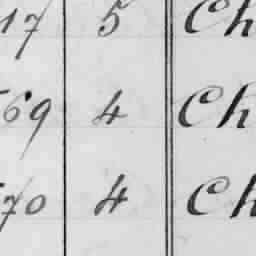 17 5 Ch
69 4 Ch
70 4 Ch